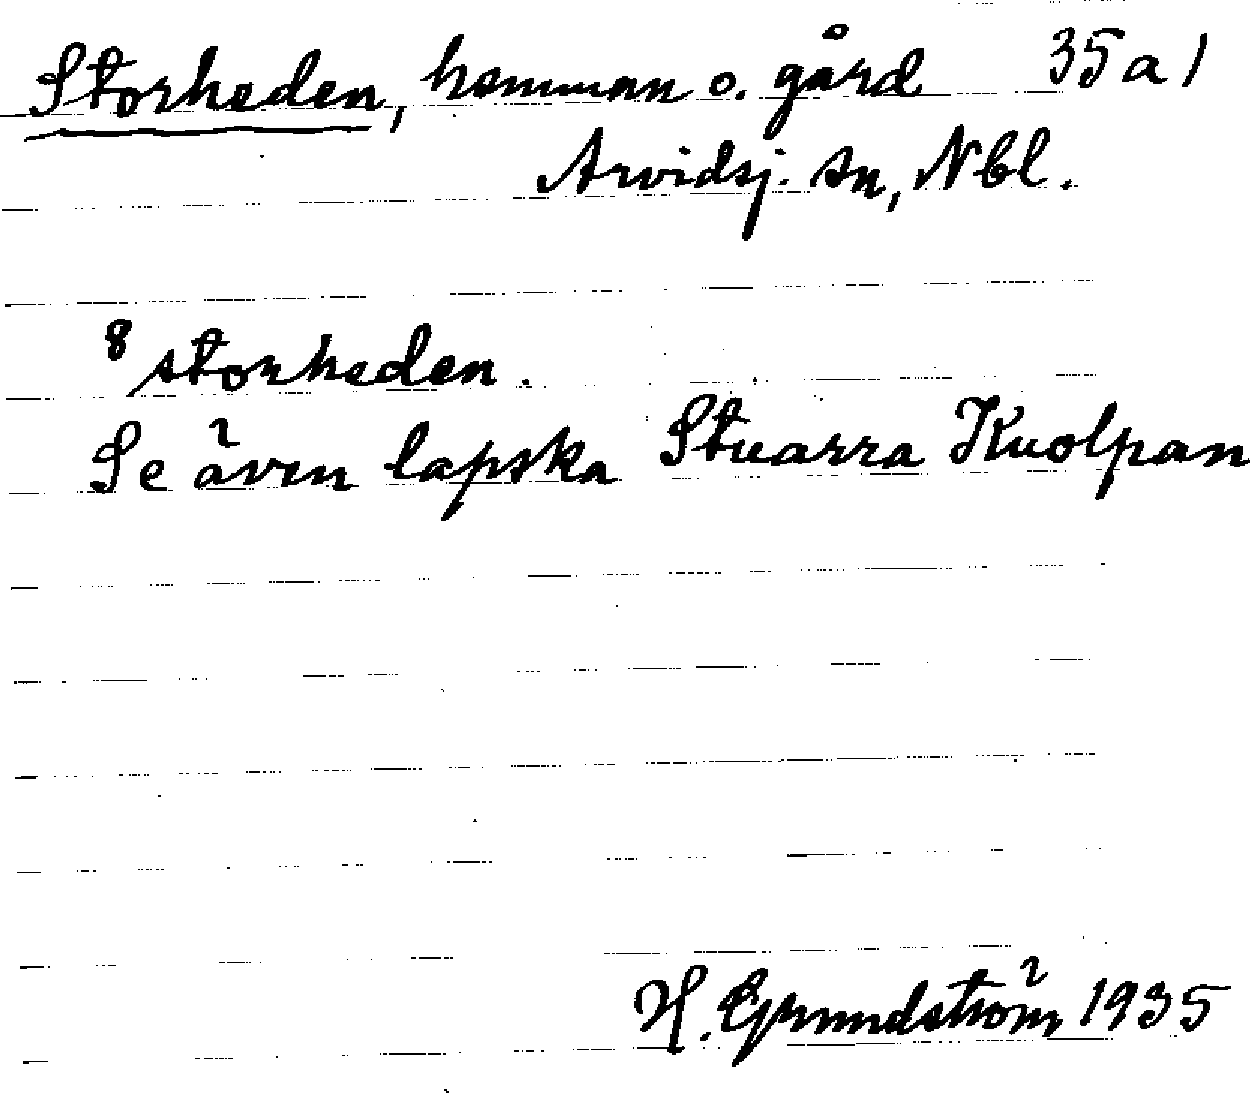 Storheden, hemman o. gård 35 a 1
Arvidsj. sn, Nbl.
8 storheden.
Se även lapska Stuarra Kuolpan
H. Grundström 1935